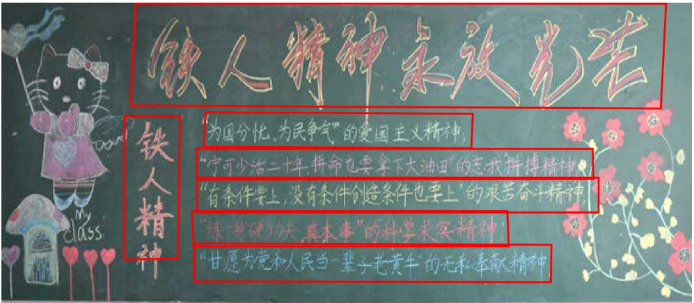 铁人精神永放光芒
铁人精神
"为国分忧、为民争气"的爱国主义精神,
"宁可少活二十年,拼命也要拿下大油田"的忘我拼搏精神,
"有条件要上,没有条件创造条件也要上"的艰苦奋斗精神,
"练一身硬功夫、真本事"的科学求实精神,
"甘愿为党和人民当一辈子老黄牛"的无私奉献精神,
My
class